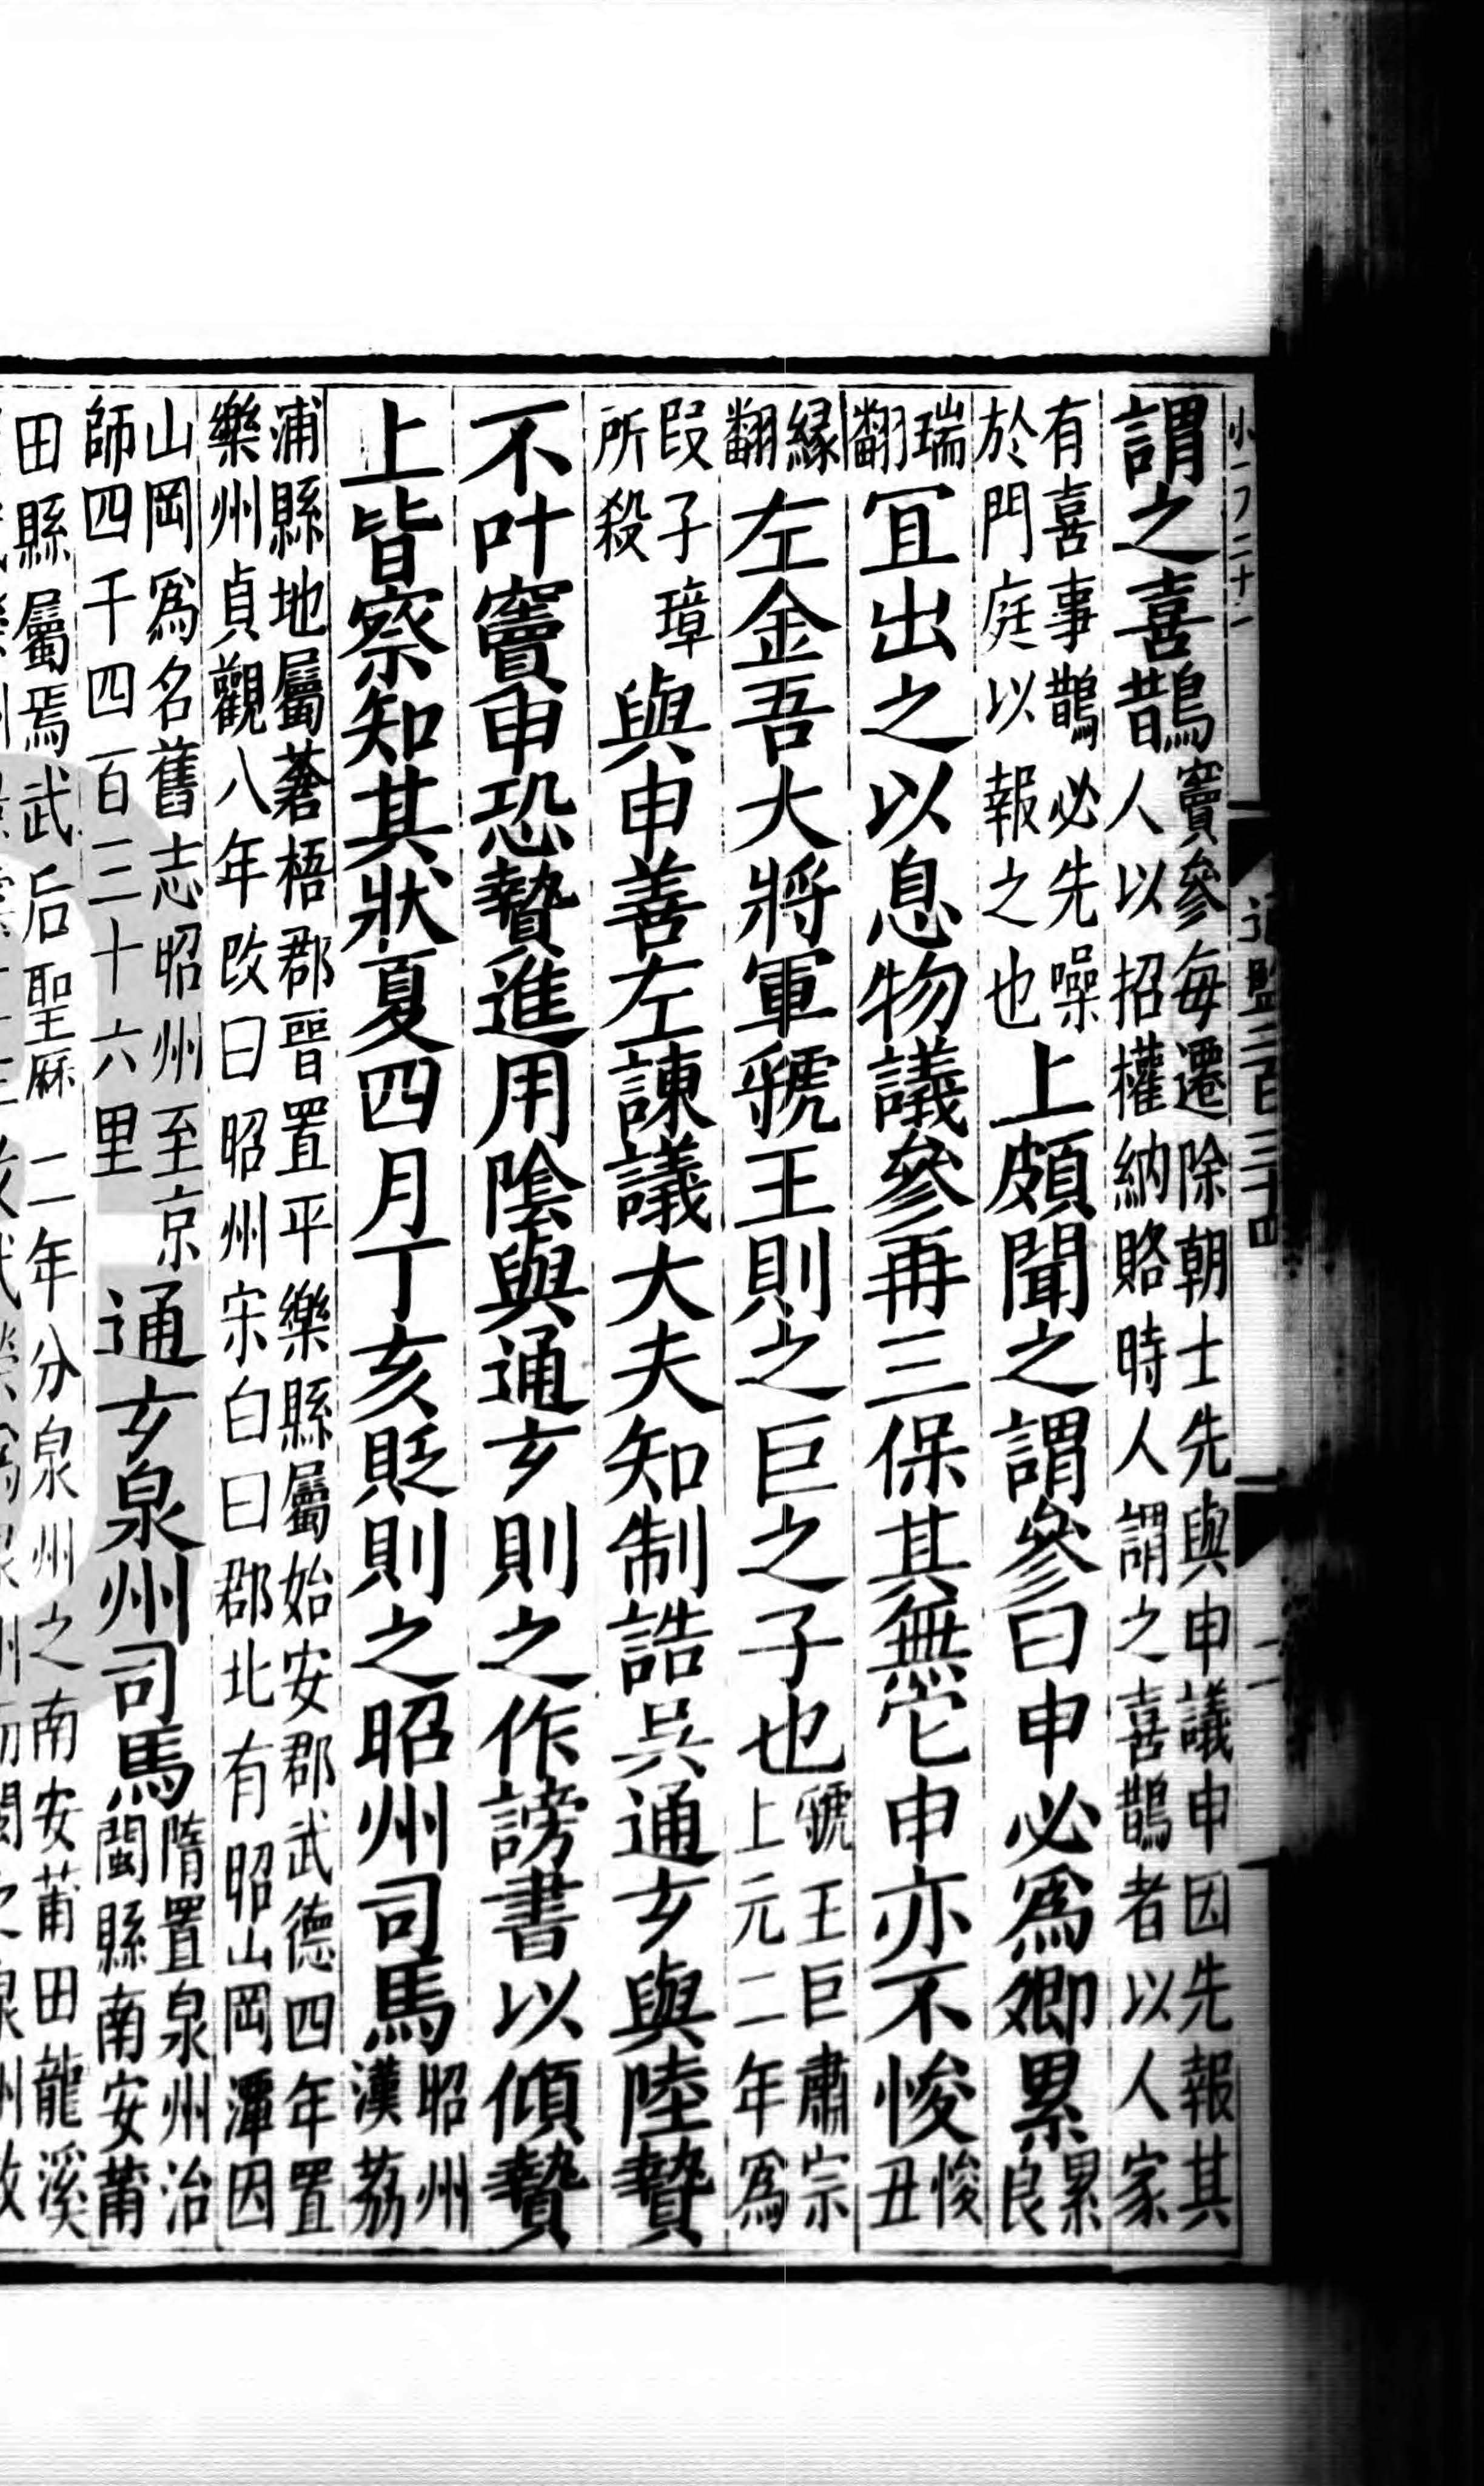 通鑑二百三十四 二
謂之喜鵲竇參每遷除朝士先與申議申因先報其
人以招權納賂時人謂之喜鵲者以人家
有喜事鵲必先噪
於門庭以報之也上頗聞之謂參曰申必爲卿累累
良
瑞
翻宜出之以息物議參再三保其無它申亦不悛悛
丑
緣
翻左金吾大將軍虢王則之巨之子也虢王巨肅宗
上元二年爲
段子璋
所殺與申善左諫議大夫知制誥吳通玄與陸贄
不叶竇申恐贄進用陰與通玄則之作謗書以傾贄
上皆察知其狀夏四月丁亥貶則之昭州司馬昭州
漢荔
浦縣地屬蒼梧郡晉置平樂縣屬始安郡武德四年置
樂州貞觀八年改曰昭州宋白曰郡北有昭山岡潭因
山岡爲名舊志昭州至京
師四千四百三十六里通玄泉州司馬隋置泉州治
閩縣南安莆
田縣屬焉武后聖厤二年分泉州之南安莆田龍溪